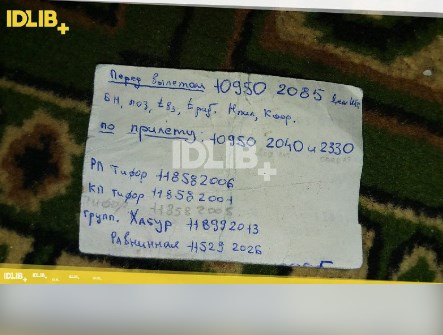 IDLIB+
Перед вылетом 10950 2085
БН, поз, tвз, tраб. Нэш, Кфор.
по прилету 10950 2040 и 2330
IDLIB+
РП Тифор 11858 2006
КП Тифор 11858 2001
Групп. Хабур 11899 2013
Равнинная 11529 2026
IDLIB+